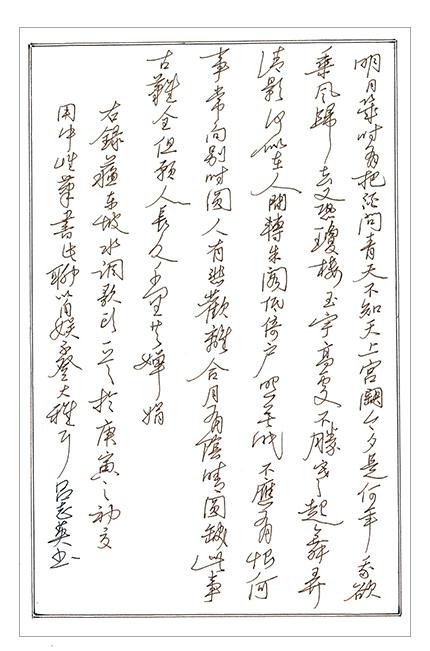 明月幾时有把酒問青天不知天上宮闕今夕是何年我欲
乘风歸去又恐瓊樓玉宇高處不勝寒起舞弄
清影何似在人間轉朱閣低倚户照無眠不應有恨何
事常向别时圓人有悲歡離合月有陰晴圓缺此事
古難全但願人長久千里共嬋娟
右錄蘇東坡水调歌頭於庚寅之初夏
用中性筆書此聊以自娱不登大雅耳 吕志英书